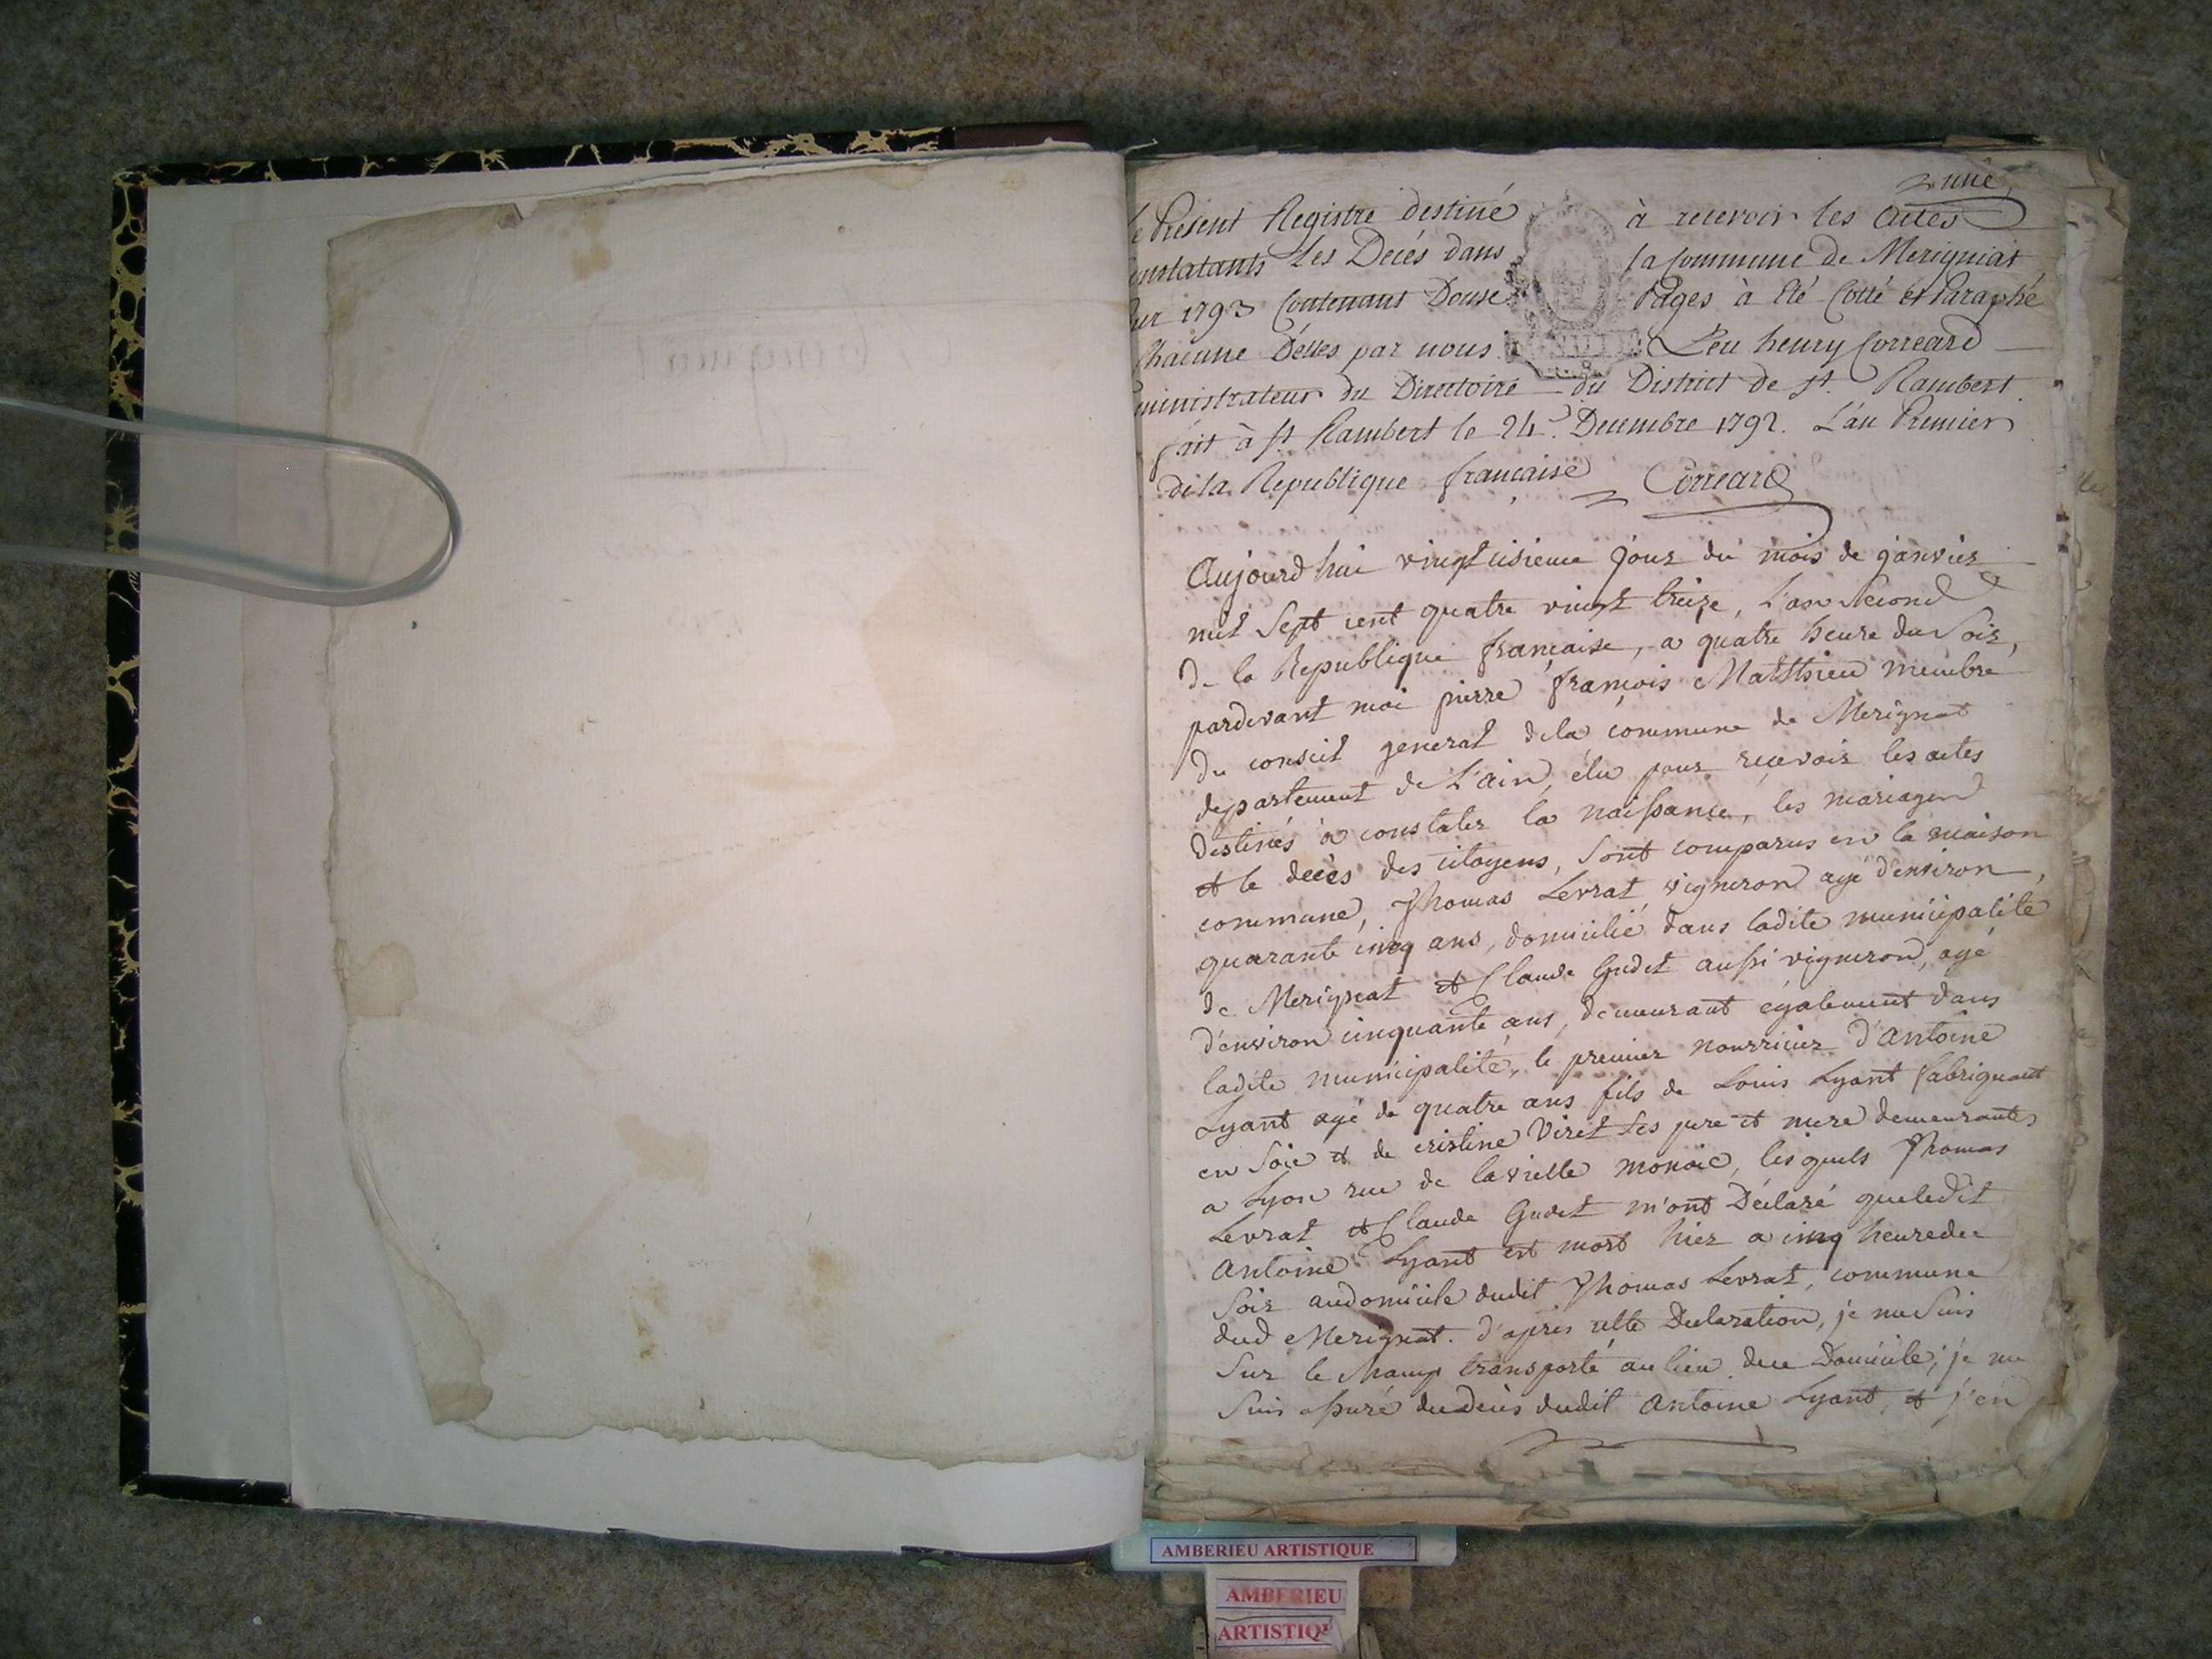 une
Le Present Registre destiné à recevoir les Actes
Constatants les Décés dans la Commune de Merigniat
pour 1793 Contenant Douse Pages à été Cotté et Paraphé
Chacune D'elles par nous Leu henry Correard
ministrateur du Directoire du District de St. Rambert.
fait à St Rambert le 24e. Decembre 1792. L'an Premier
de la Republique française Correard
Aujourd'hui vingt uisieme jour du mois de janvier
mil Sept cent quatre vingt treize, L'an Second
de la Republique française, a quatre heure du Soir,
pardevant moi pierre françois Matthieu membre
du conseil general dela commune de Merignat
departement de L'ain, élu pour reçevoir les actes
destinés a constater la naissance, les mariages
et le decès des citoyens, Sont comparus en la maison
commune, Thomas Levrat, vigneron agé d'environ,
quarante cinq ans, domicilié dans ladite municipalité
de Merignat et Claude Gudet aussi vigneron, agé
d'environ cinquante ans, demeurant également dans
ladite municipalité, le premier nourricier d'Antoine
Lyant agé de quatre ans fils de Louis Lyant fabriquant
en Soie et de cristine Viret Ses pere et mere demeurants
a Lyon rue de lavielle monoie, lesquels Thomas
Levrat et Claude Gudet m'ont Déclaré queledit
Antoine Lyant est mort hier a cinq heuredu
Soir audomicile dudit Thomas Levrat, commune
dud Merignat. d'après cette Declaration, je meSuis
Sur le champ transporté au lieu duu Domicile; je me
Suis assuré dudecès dudit Antoine Lyant, et j'en
AMBERIEU ARTISTIQUE
AMBERIEU
ARTISTIQU